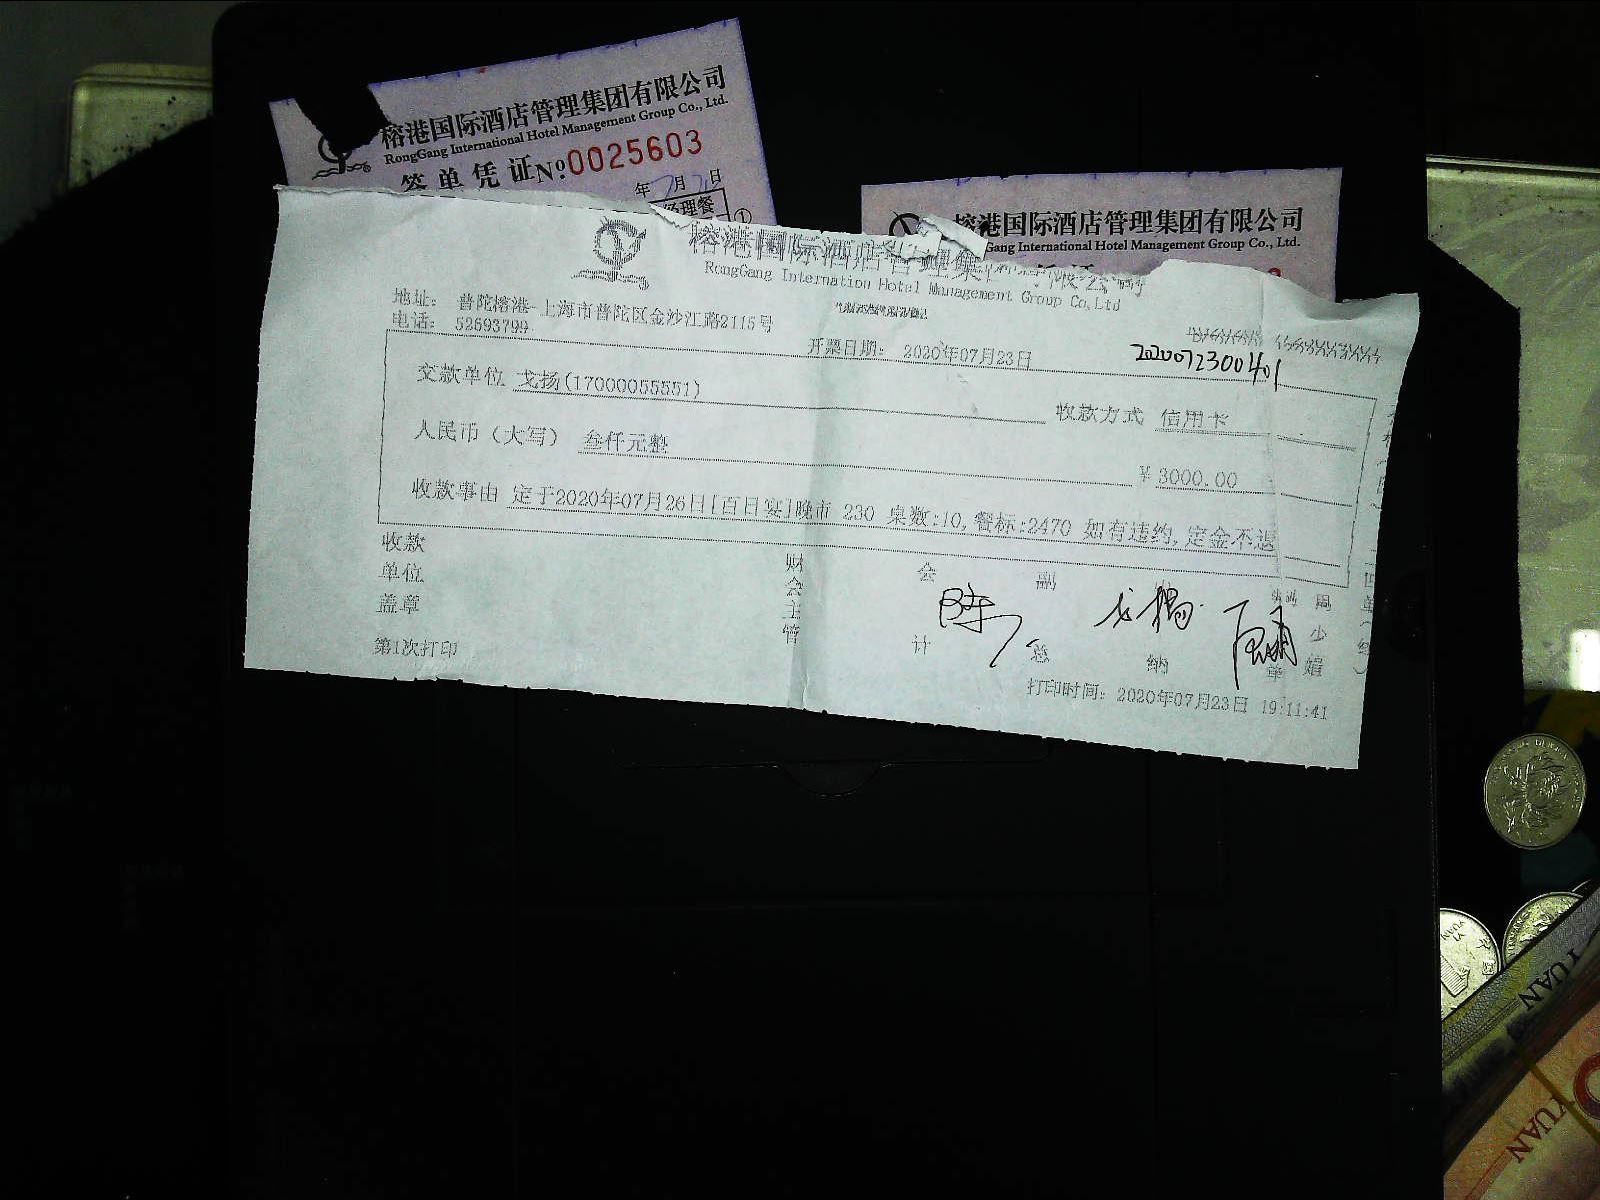 榕港国际酒店管理集团有限公司
RongGang International Hotel Management Group Co., Ltd.
签单凭证 No:0025603
年7月 日
经理餐
①
榕港国际酒店管理集团有限公司
Gang International Hotel Management Group Co., Ltd.
榕港国际酒店管理集 有限公司
RongGang Internation Hotel Management Group Co,Ltd
地址： 普陀榕港-上海市普陀区金沙江路2115号
电话： 52593799
开票日期： 2020年07月23日
202007230401
交款单位 戈扬(17000055551)
收款方式 信用卡
人民币（大写） 叁仟元整
￥3000.00
收款事由 定于2020年07月26日[百日宴]晚市 230 桌数:10,餐标:2470 如有违约,定金不退
收款单位盖章
财会主管
会计
副总
出纳
制单
周少娟
第1次打印
打印时间： 2020年07月23日 19:11:41
YI YUAN
YUAN
YUAN